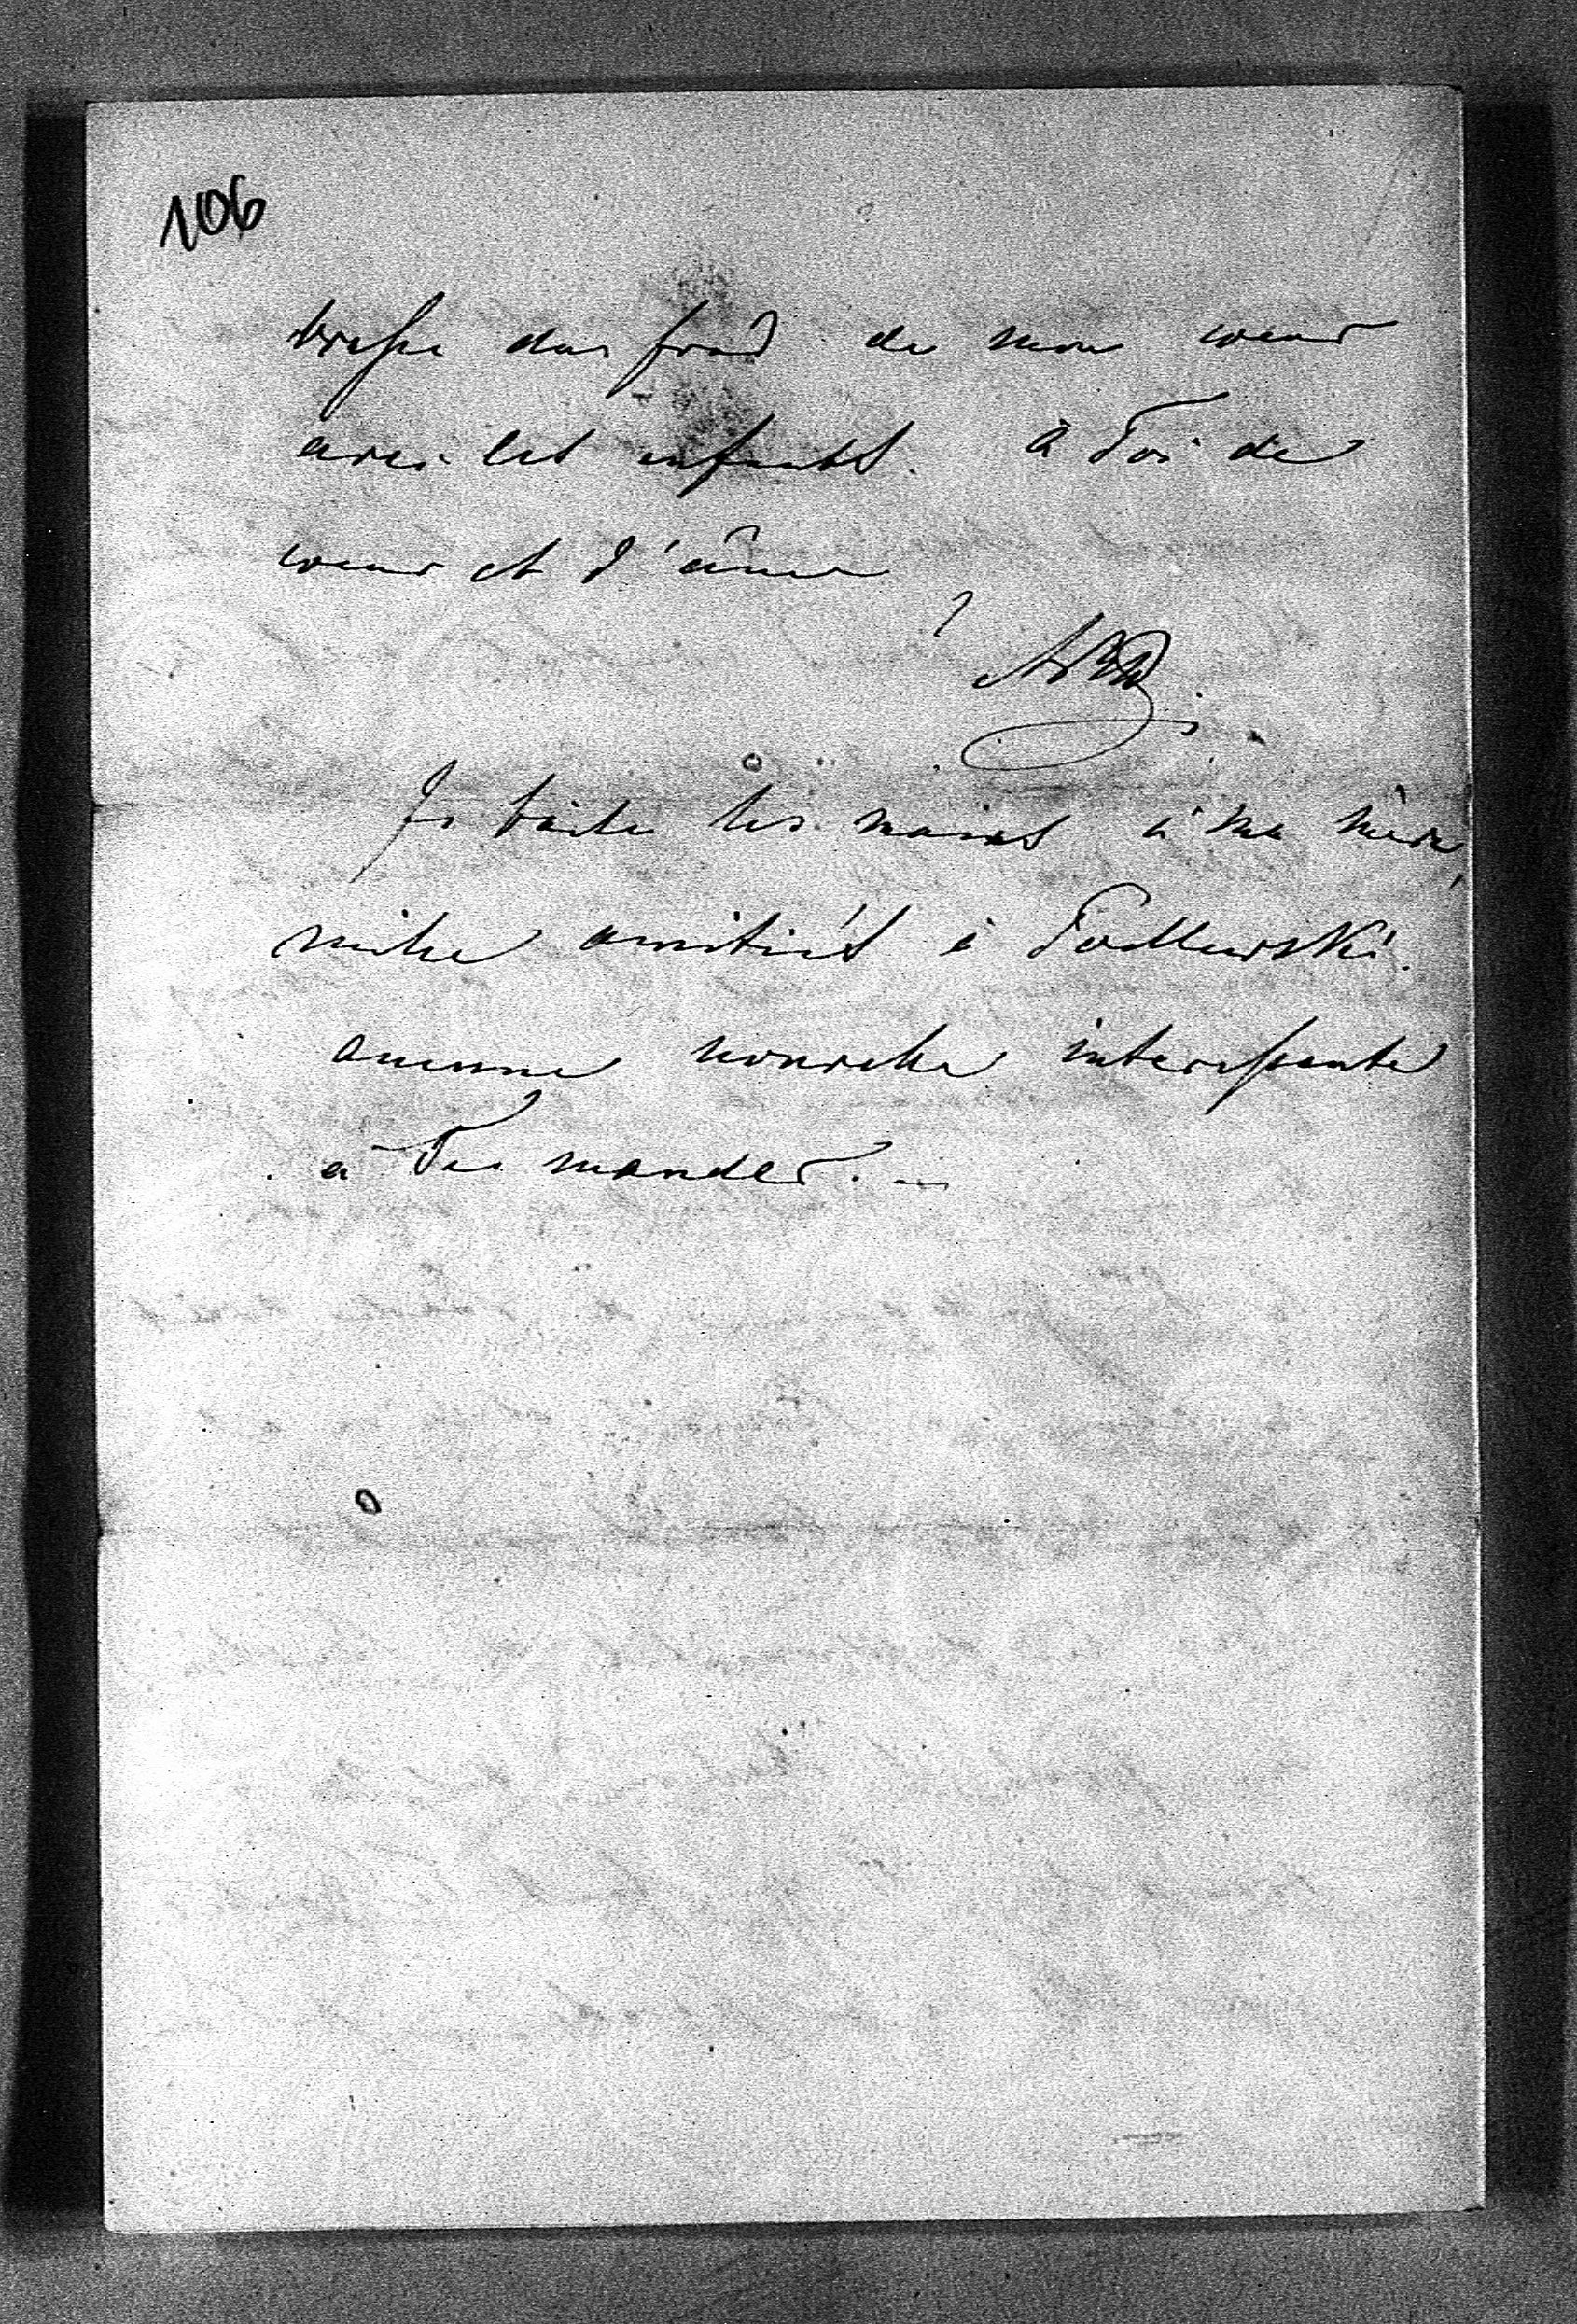 106
brasse du fond de mon coeur
avec les enfants. à Toi de
coeur et d'âme
Je baise les mains à ma mère,
mille amitiés à Podlewski.
aucune nouvelle interessante
à Te mander. —